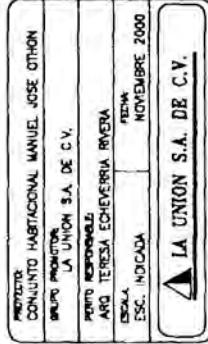 PROYECTO:
CONJUNTO HABITACIONAL MANUEL JOSE OTHON
GRUPO PROMOTOR:
LA UNION S.A. DE C.V.
PERITO RESPONSABLE:
ARQ. TERESA ECHEVERRIA RIVERA
ESCALA: FECHA:
ESC. INDICADA NOVIEMBRE 2000
LA UNION S.A. DE C.V.